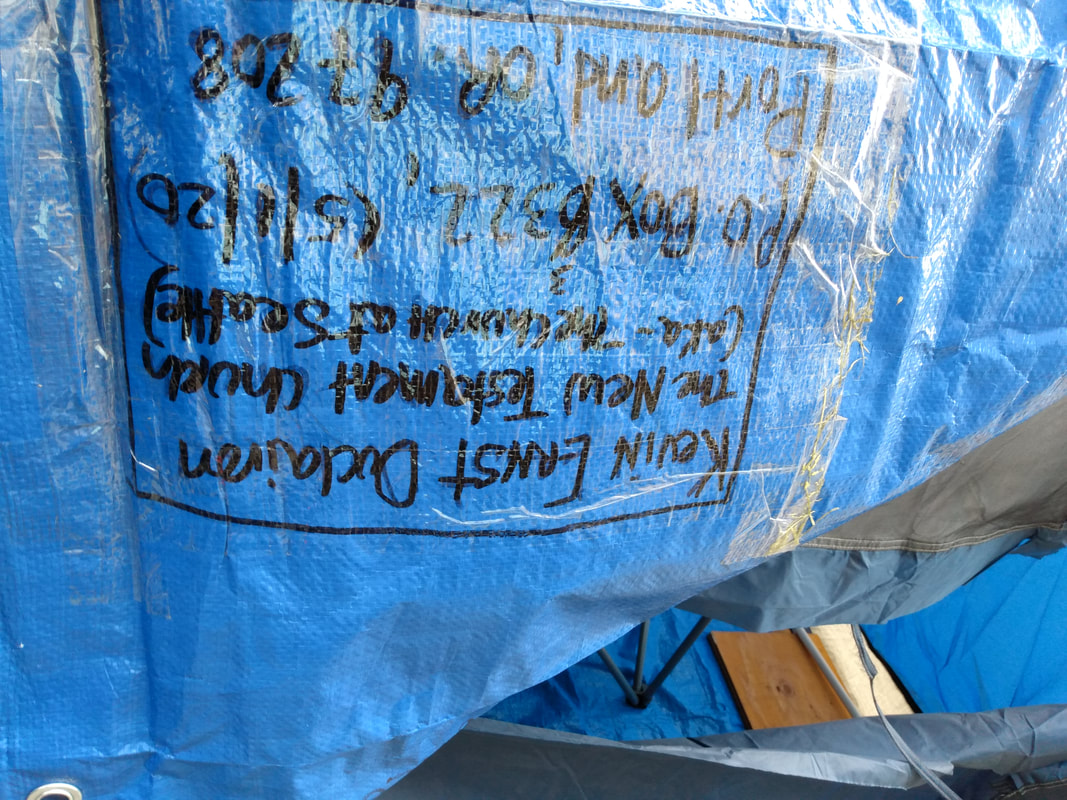 Kevin Ernst Duclairon
The New Testament Church
(aka - The Church at Seattle)
P.O. Box 8322, (5/11/20
Portland, OR. 97208